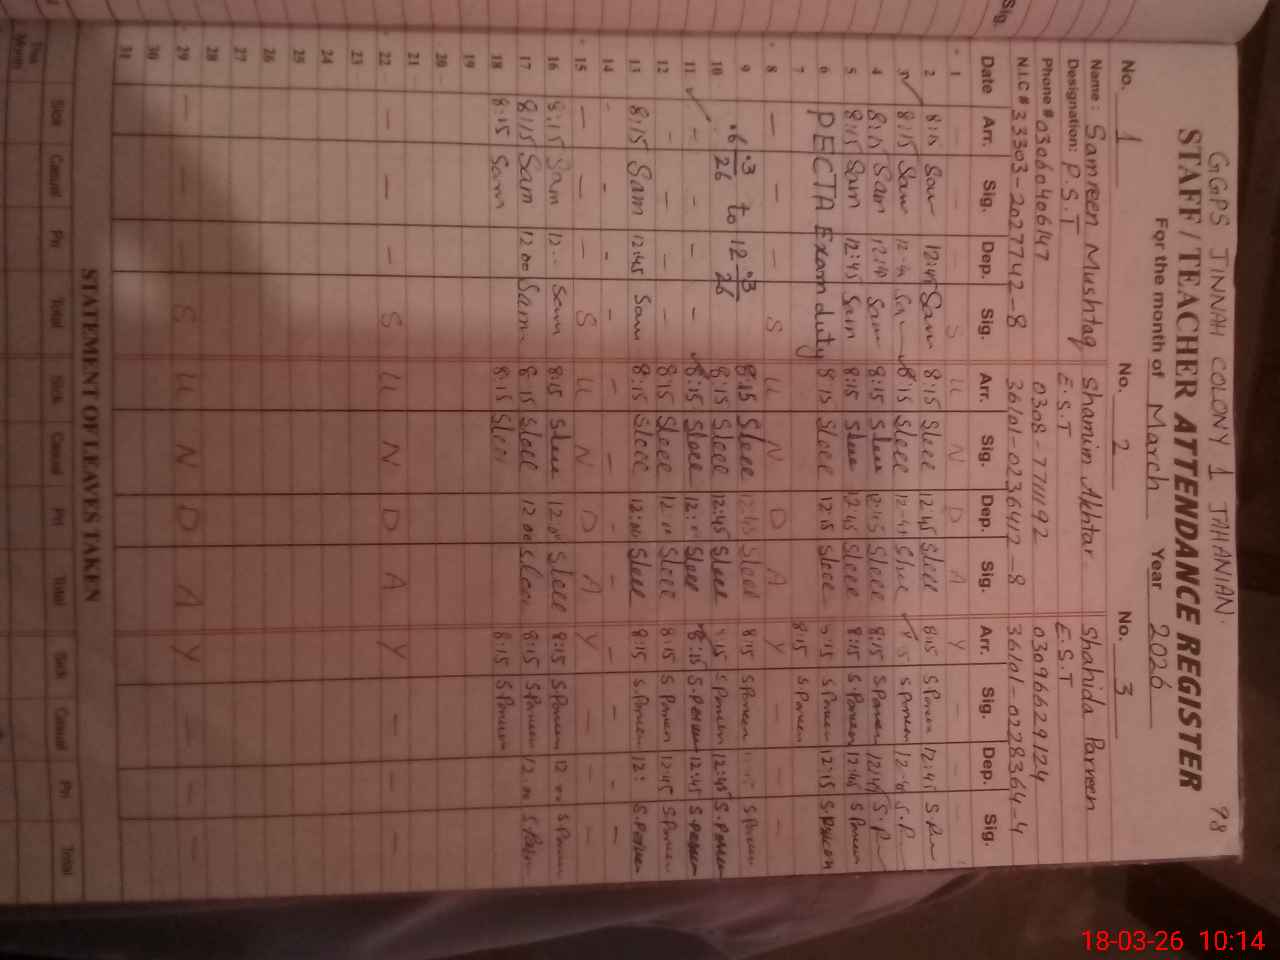 GGPS JINNAH COLONY 1 JAHANIAN. 98
STAFF / TEACHER ATTENDANCE REGISTER
For the month of March Year 2026
No. 1 No. 2 No. 3
Name: Samreen Mushtaq Shamim Akhtar. Shahida Parveen
Designation: P.S.T E.S.T E.S.T
Phone # 03060406147 0308-7711192 03096629124
N.I.C # 33303-2027742-8 36101-0236412-8 36101-0228364-4
Date Arr. Sig. Dep. Sig. Arr. Sig. Dep. Sig. Arr. Sig. Dep. Sig.
1 - - - S U N D A Y - - -
2 8:15 Sam 12:45 Sam 8:15 12:45 8:15 S.Parveen 12:45
3 8:15 Sam 8:15 S Parveen
4 8:15 Sam Sam 8:15 12:45 8:15 S Parveen 12:45
5 8:15 Sam 12:45 Sam 8:15 12:45 8:15 S.Parveen 12:45 S Parveen
6 PECTA Exam duty 8:15 12:15 8:15 S Parveen 12:15 S.Parveen
7 8:15 S Parveen
8 - - - S U N D A Y - - -
9 8:15 12:45 8:15 S Parveen S Parveen
10 6.3/26 to 12.3/26 8:15 12:45 8:15 S Parveen 12:45 S.Parveen
11 - - - - 8:15 8:15 S.Parveen 12:45 S.Parveen
12 - - - - 8:15 8:15 S Parveen 12:45 S Parveen
13 8:15 Sam 12:45 Sam 8:15 12:00 8:15 S.Parveen S.Parveen
14 - - - - - - - - - - - -
15 - - - S U N D A Y - - -
16 8:15 Sam Sam 8:15 12:00 8:15 S Parveen 12 00 S Parveen
17 8:15 Sam 12 00 Sam 8:15 12 00 8:15 S Parveen 12 00 S Parveen
18 8:15 Sam 8:15 8:15 S Parveen
19
20
21
22 - - - S U N D A Y - - -
23
24
25
26
27
28
29 - - - S U N D A Y - - -
30
31
STATEMENT OF LEAVES TAKEN
Sick Casual Pri Total Sick Casual Pri Total Sick Casual Pri Total
This Month
Sig.
18-03-26 10:14